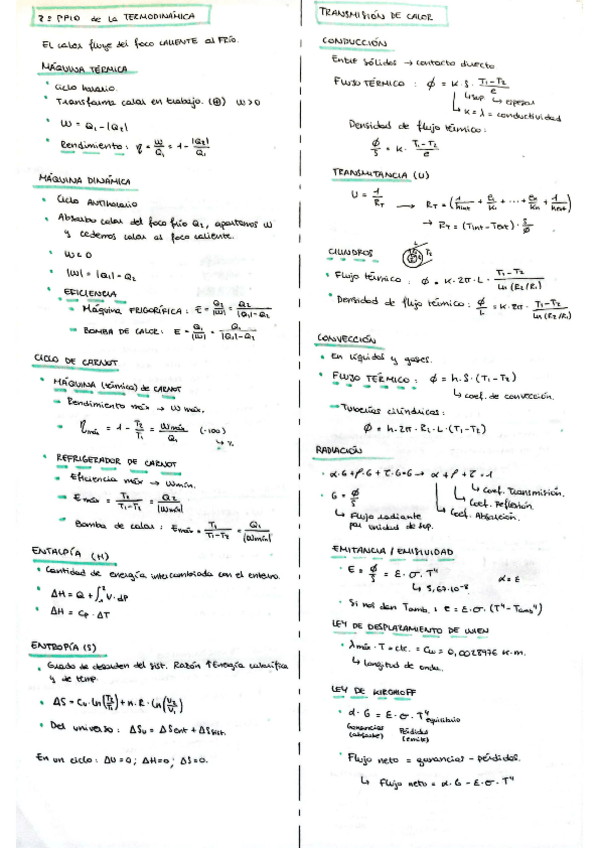 2º PPIO de la TERMODINÁMICA
EL calor fluye del foco CALIENTE al FRÍO.
MÁQUINA TÉRMICA
Ciclo horario.
Transforma calor en trabajo. (⊕) W>0
W = Q₁ - |Q₂|
Rendimiento: η = W/Q₁ = 1 - |Q₂|/Q₁
MÁQUINA DINÁMICA
Ciclo ANTIhorario
Absorbe calor del foco frío Q₂, aportamos W
y cedemos calor al foco caliente.
W<0
|W| = |Q₁| - Q₂
EFICIENCIA
→ Máquina FRIGORÍFICA: E = Q₂/|W| = Q₂/(|Q₁|-Q₂)
→ BOMBA DE CALOR: E = Q₁/|W| = Q₁/(|Q₁|-Q₂)
CICLO DE CARNOT
MÁQUINA (térmica) de CARNOT
→ Rendimiento máx → W máx.
→ η máx = 1 - T₂/T₁ = Wmáx/Q₁ (·100)
↳ %
REFRIGERADOR DE CARNOT
→ Eficiencia máx → Wmín.
→ E máx = T₂/(T₁-T₂) = Q₂/|Wmín|
Bomba de calor: E máx = T₁/(T₁-T₂) = Q₁/|Wmín|
ENTALPÍA (H)
Cantidad de energía intercambiada con el entorno.
ΔH = Q + ∫₁² V·dP
ΔH = Cp·ΔT
ENTROPÍA (S)
Grado de desorden del sist. Razón ↑Energía calorífica
y de temp.
ΔS = Cv·ln(T₂/T₁) + n·R·ln(V₂/V₁)
Del universo: ΔSu = ΔSent + ΔSsist.
En un ciclo: ΔU=0; ΔH=0; ΔS=0.
TRANSMISIÓN DE CALOR
CONDUCCIÓN
Entre sólidos → contacto directo
FLUJO TÉRMICO: ϕ = K·S·(T₁-T₂)/e
↳ sup ↳ espesor
↳ K = λ = conductividad
Densidad de flujo térmico:
ϕ/S = K·(T₁-T₂)/e
TRANSMITANCIA (U)
U = 1/R_T → R_T = (1/hint + e₁/K₁ + ... + en/Kn + 1/hext)
→ R_T = (Tint - Text)·S/ϕ
CILINDROS L T₂
Flujo térmico: ϕ = K·2π·L·(T₁-T₂)/ln(R₂/R₁)
Densidad de flujo térmico: ϕ/L = K·2π·(T₁-T₂)/ln(R₂/R₁)
CONVECCIÓN
En líquidos y gases.
FLUJO TÉRMICO: ϕ = h·S·(T₁-T₂)
↳ coef. de convección.
→ Tuberías cilíndricas:
ϕ = h·2π·R₁·L·(T₁-T₂)
RADIACIÓN
α·G+ρ·G+τ·G=G → α+ρ+τ=1
↳ Coef. Transmisión.
↳ Coef. Reflexión.
↳ Coef. Absorción.
G = ϕ/S
↳ Flujo radiante
por unidad de sup.
EMITANCIA / EMISIVIDAD
E = ϕ/S = ε·σ·T⁴ α=ε
↳ 5,67·10⁻⁸
Si nos dan Tamb.: E = ε·σ·(T⁴-Tamb⁴)
LEY DE DESPLAZAMIENTO DE WIEN
λmáx·T = cte. = Cw = 0,0028976 K·m.
↳ longitud de onda.
LEY DE KIRCHOFF
α·G = ε·σ·T⁴ equilibrio
Ganancias (absorbe) Pérdidas (emite)
Flujo neto = ganancias - pérdidas.
↳ Flujo neto = α·G - ε·σ·T⁴